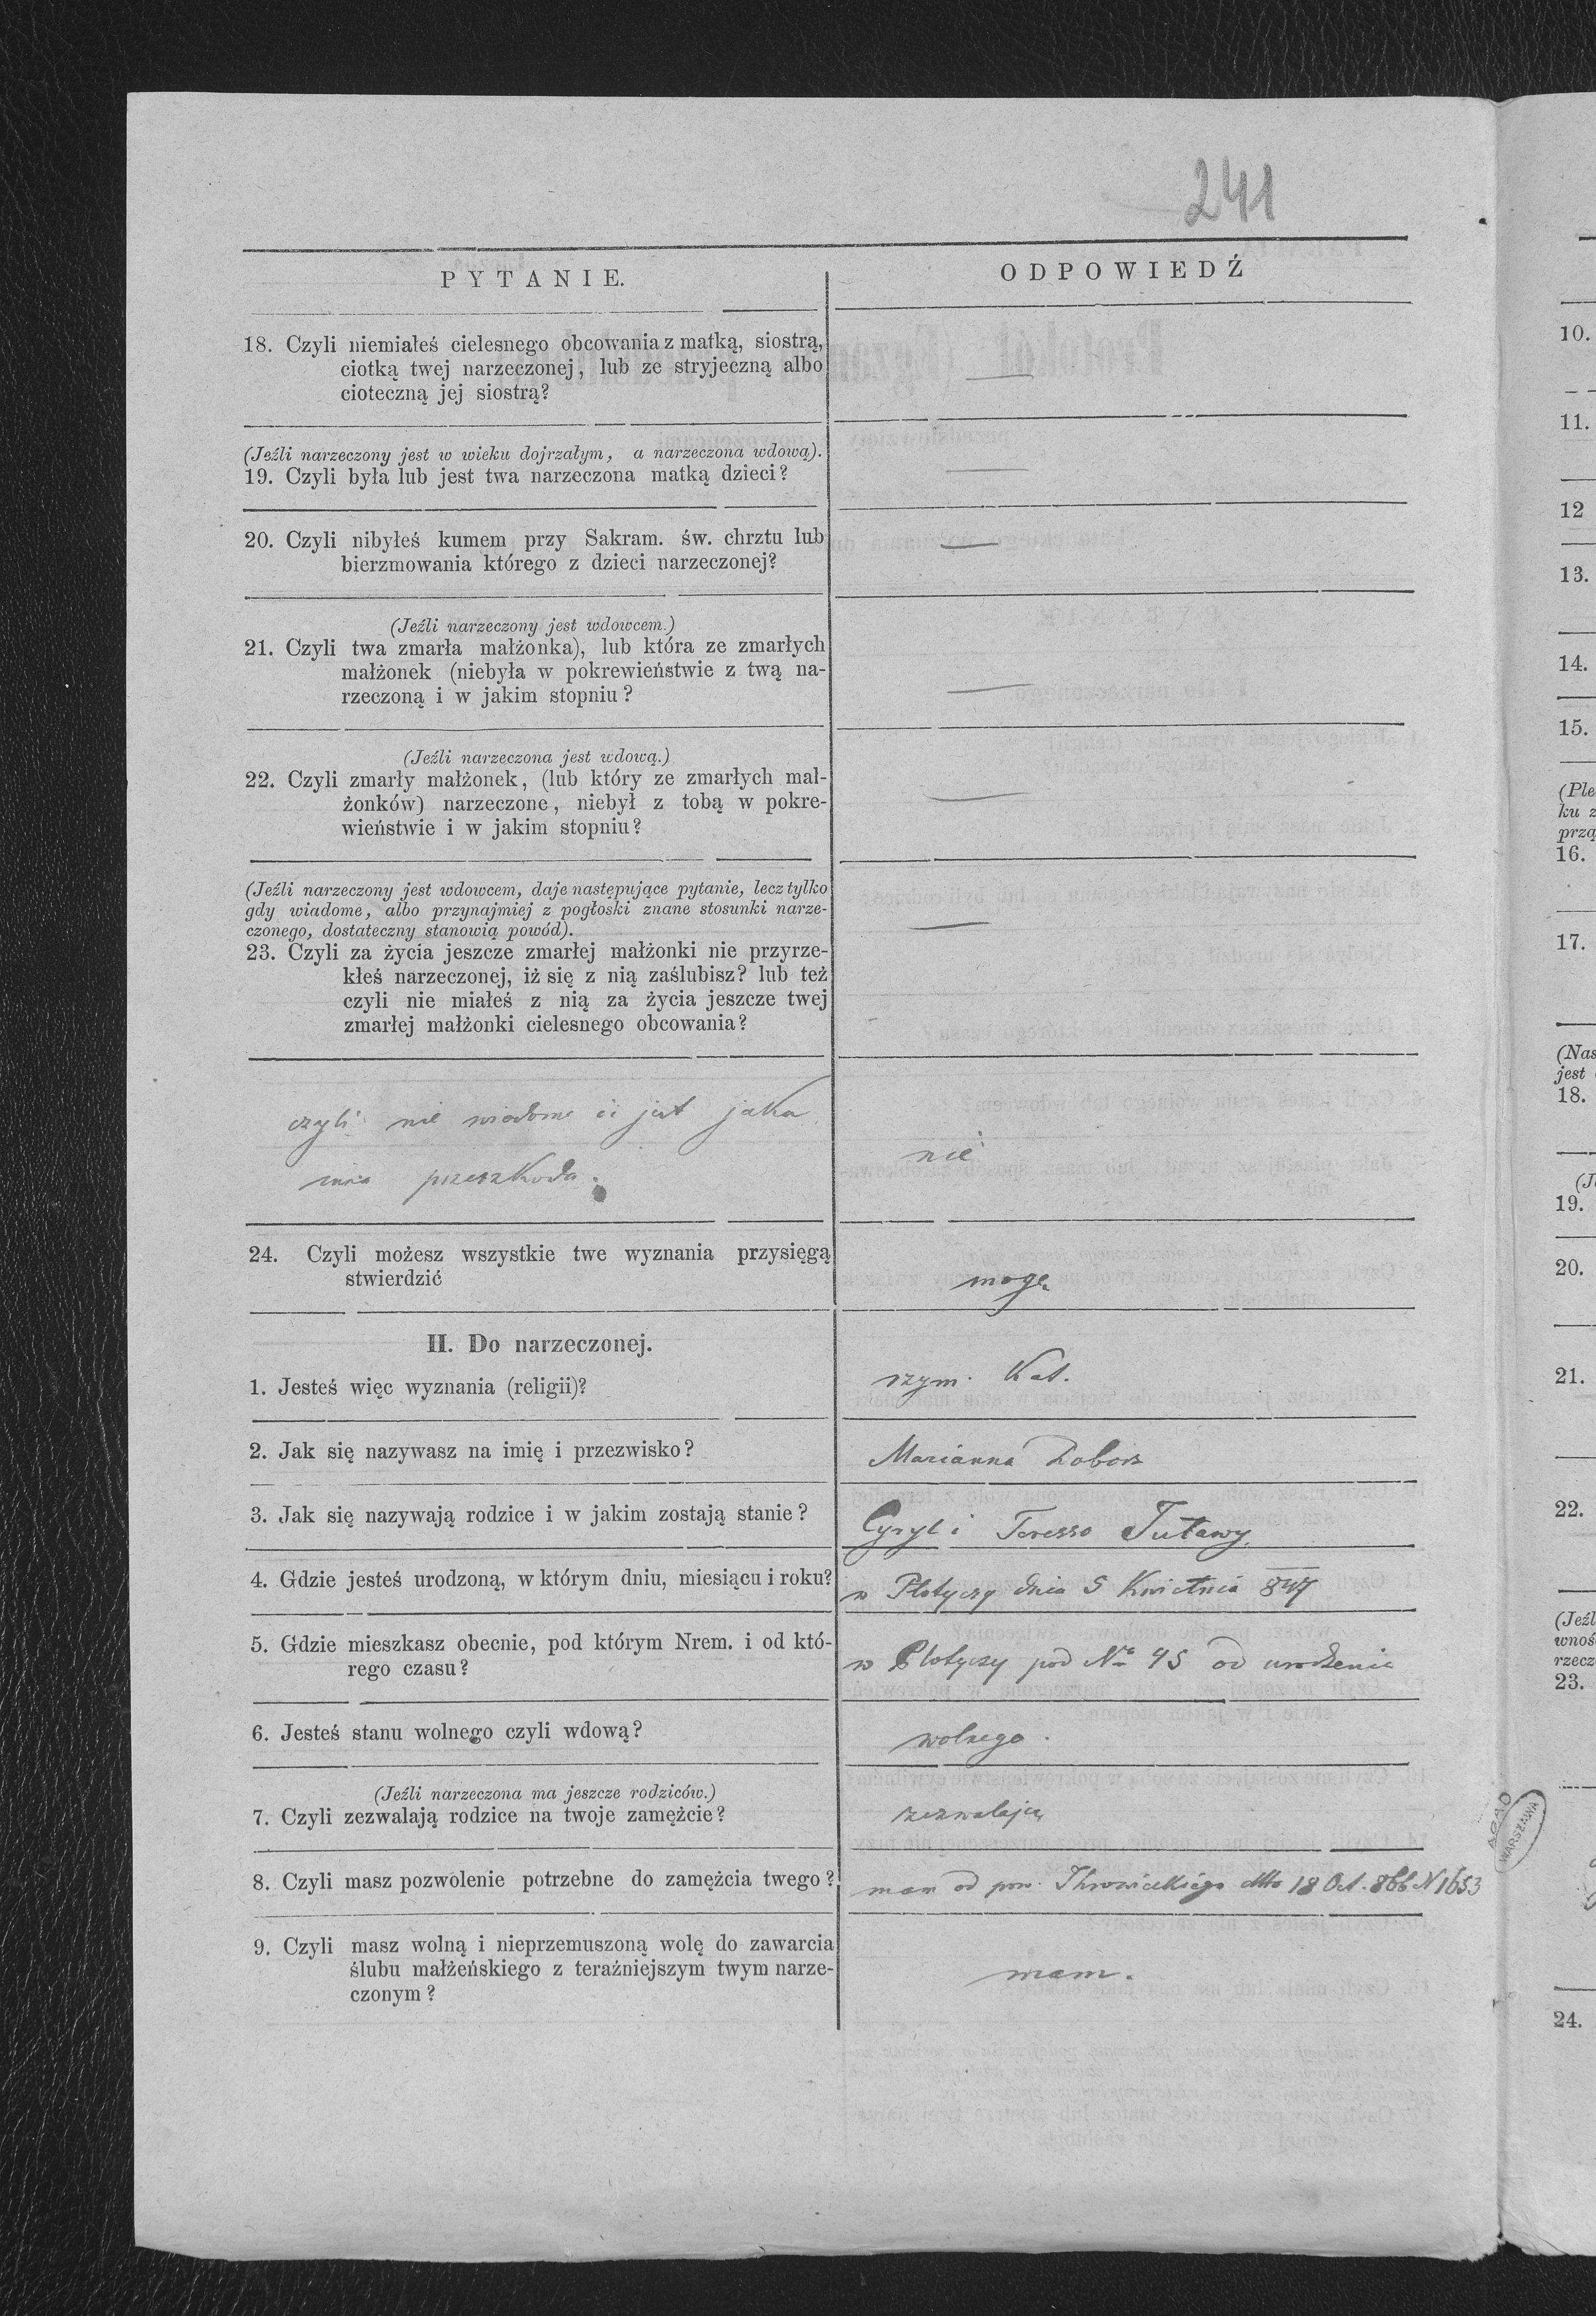 241
PYTANIE.
ODPOWIEDŹ
18. Czyli niemiałeś cielesnego obcowania z matką, siostrą,
ciotką twej narzeczonej, lub ze stryjeczną albo
cioteczną jej siostrą?
—
(Jeźli narzeczony jest w wieku dojrzałym, a narzeczona wdową).
19. Czyli była lub jest twa narzeczona matką dzieci?
—
20. Czyli nibyłeś kumem przy Sakram. św. chrztu lub
bierzmowania którego z dzieci narzeczonej?
—
(Jeźli narzeczony jest wdowcem.)
21. Czyli twa zmarła małżonka), lub która ze zmarłych
małżonek (niebyła w pokrewieństwie z twą na-
rzeczoną i w jakim stopniu?
—
(Jeźli narzeczona jest wdową.)
22. Czyli zmarły małżonek, (lub który ze zmarłych mał-
żonków) narzeczone, niebył z tobą w pokre-
wieństwie i w jakim stopniu?
—
(Jeźli narzeczony jest wdowcem, daje następujące pytanie, lecz tylko
gdy wiadome, albo przynajmiej z pogłoski znane stosunki narze-
czonego, dostateczny stanowią powód).
23. Czyli za życia jeszcze zmarłej małżonki nie przyrze-
kłeś narzeczonej, iż się z nią zaślubisz? lub też
czyli nie miałeś z nią za życia jeszcze twej
zmarłej małżonki cielesnego obcowania?
—
czyli nie wiadome ci jest jaka
inna przeszkoda.
nie
24. Czyli możesz wszystkie twe wyznania przysięgą
stwierdzić
mogę
II. Do narzeczonej.
1. Jesteś więc wyznania (religii)?
rzym. Kat.
2. Jak się nazywasz na imię i przezwisko?
Marianna
3. Jak się nazywają rodzice i w jakim zostają stanie?
Cyryl i Teressa
4. Gdzie jesteś urodzoną, w którym dniu, miesiącu i roku?
w Płotyczy dnia 5 Kwietnia 847
5. Gdzie mieszkasz obecnie, pod którym Nrem. i od któ-
rego czasu?
w Płotyczy pod No 45 od urodzenia
6. Jesteś stanu wolnego czyli wdową?
wolnego.
(Jeźli narzeczona ma jeszcze rodziców.)
7. Czyli zezwalają rodzice na twoje zamężcie?
zezwalają
8. Czyli masz pozwolenie potrzebne do zamężcia twego?
mam od pow. dtto 18 Oct. 866 N 1653
9. Czyli masz wolną i nieprzemuszoną wolę do zawarcia
ślubu małżeńskiego z teraźniejszym twym narze-
czonym?
mam.
AGAD
WARSZAWA
10.
11.
12
13.
14.
15.
(Ple
ku z
przą
16.
17.
(Nas
jest
18.
(J
19.
20.
21.
22.
(Jeźl
wnoś
rzecz
23.
24.